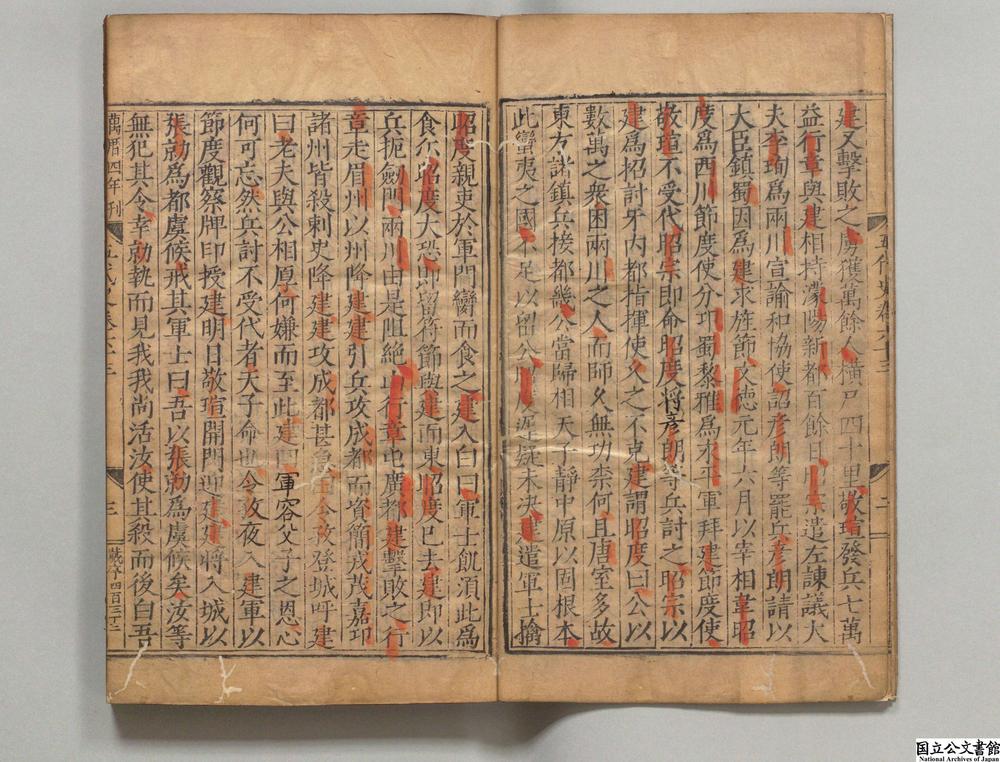 建又擊敗之虜獲萬餘人橫尸四十里敬瑄發兵七萬
益行章與建相持濛陽新都百餘日昭宗遣左諫議大
夫李珣為兩川宣諭和協使詔彥朗等罷兵彥朗請以
大臣鎮蜀因為建求旌節文德元年六月以宰相韋昭
度為西川節度使分邛蜀黎雅為永平軍拜建節度使
敬瑄不受代昭宗即命昭度將彥朗等兵討之昭宗以
建為招討牙內都指揮使久之不克建謂昭度曰公以
數萬之衆困兩川之人而師久無功柰何且唐室多故
東方諸鎮兵接都畿公當歸相天子靜中原以固根本
此蠻夷之國不足以留公昭度遲疑未決建遣軍士擒
五代史卷六十三
二
昭度親吏於軍門臠而食之建入白曰軍士飢須此為
食尔昭度大恐即留符節與建而東昭度已去建即以
兵扼劔門兩川由是阻絶山行章屯廣都建擊敗之行
章走眉州以州降建建引兵攻成都而資簡戎茂嘉邛
諸州皆殺刺史降建建攻成都甚急田令孜登城呼建
曰老夫與公相厚何嫌而至此建曰軍容父子之恩心
何可忘然兵討不受代者天子命也令孜夜入建軍以
節度觀察牌印授建明日敬瑄開門迎建建將入城以
張勍為都虞候戒其軍士曰吾以張勍為虞候矣汝等
無犯其令幸勍執而見我我尚活汝使其殺而後白吾
萬曆四年刊
五代史卷六十三
三
國立公文書館
National Archives of Japan